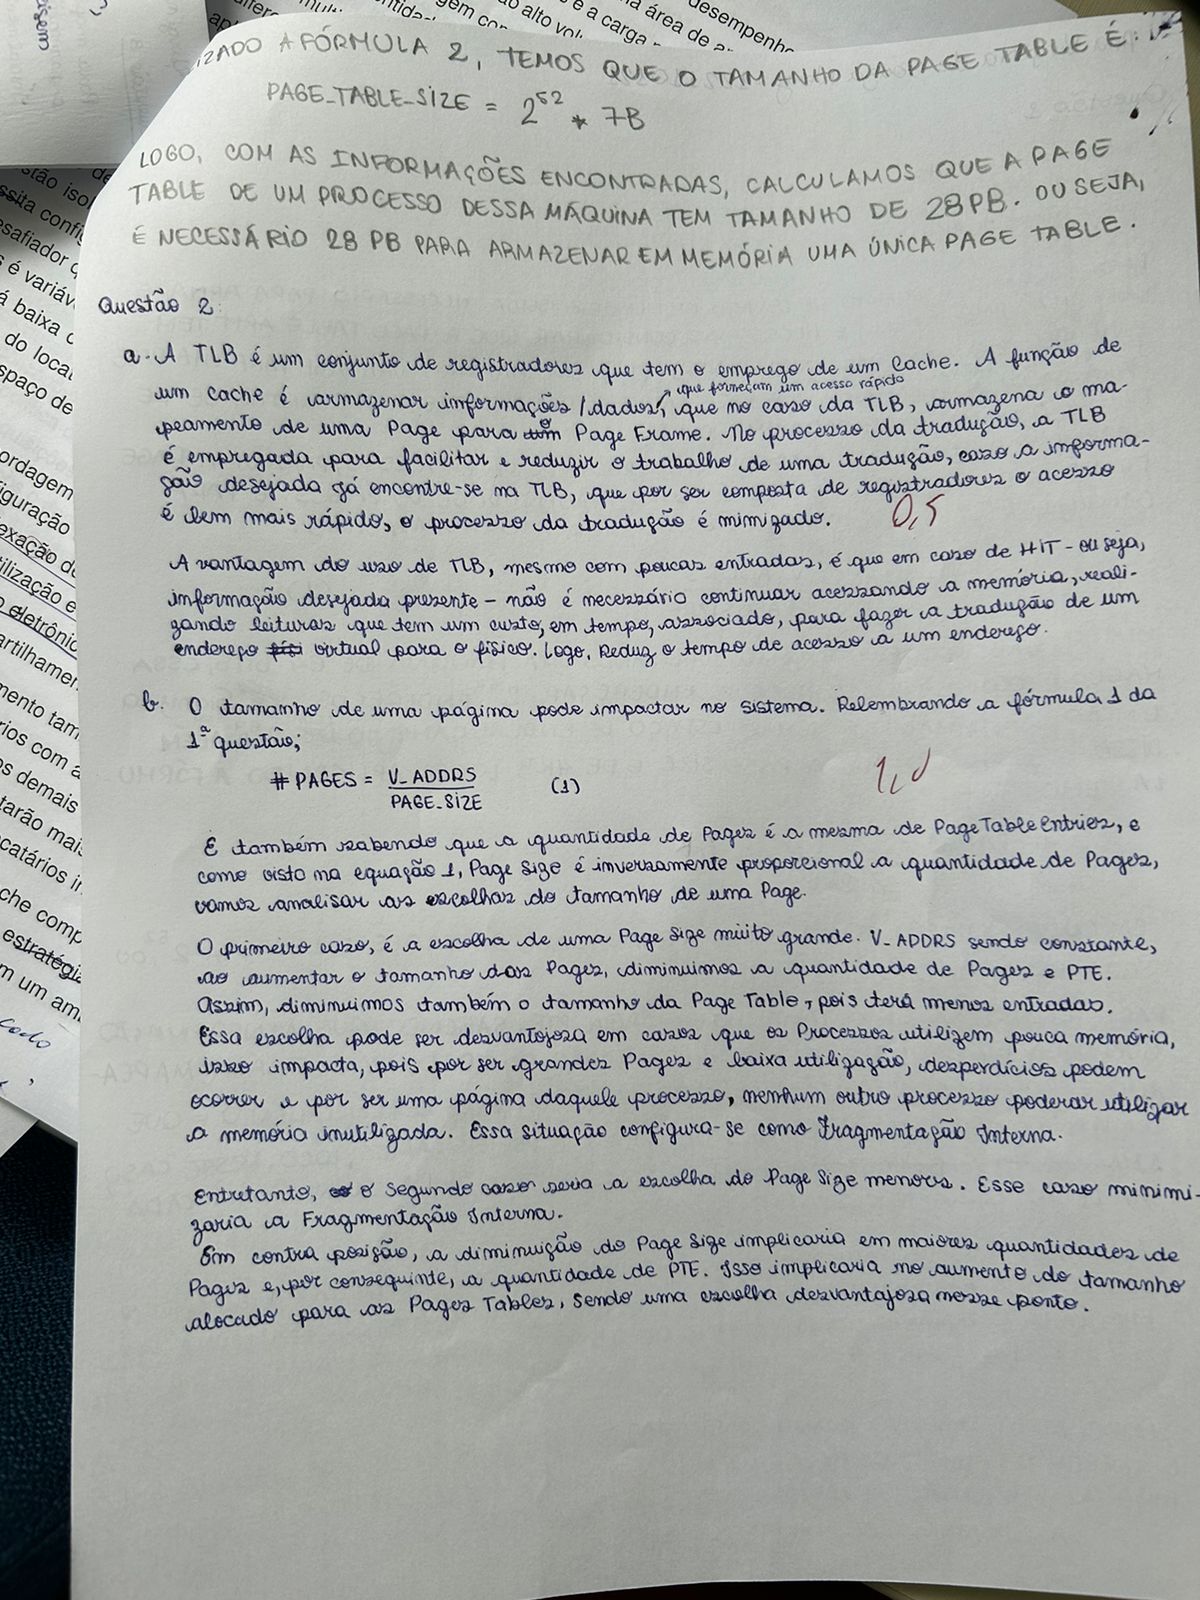 desempenho
gem con
ao alto vol
e a carga
na área de
sistem
IZADO A FÓRMULA 2, TEMOS QUE O TAMANHO DA PAGE TABLE É:
PAGE_TABLE_SIZE = 2^52 * 7B
LOGO, COM AS INFORMAÇÕES ENCONTRADAS, CALCULAMOS QUE A PAGE
TABLE DE UM PROCESSO DESSA MÁQUINA TEM TAMANHO DE 28PB. OU SEJA,
É NECESSÁRIO 28 PB PARA ARMAZENAR EM MEMÓRIA UMA ÚNICA PAGE TABLE.
Questão 2:
a. A TLB é um conjunto de registradores que tem o emprego de um Cache. A função de
que forneçam um acesso rápido
um cache é armazenar informações/dados, que no caso da TLB, armazena o ma-
peamento de uma Page para o Page Frame. No processo da tradução, a TLB
é empregada para facilitar e reduzir o trabalho de uma tradução, caso a informa-
ção desejada já encontre-se na TLB, que por ser composta de registradores o acesso
é bem mais rápido, o processo da tradução é mimizado.
0,5
A vantagem do uso de TLB, mesmo com poucas entradas, é que em caso de HIT - ou seja,
informação desejada presente - não é necessário continuar acessando a memória, reali-
zando leituras que tem um custo, em tempo, associado, para fazer a tradução de um
endereço físi virtual para o físico. Logo, Reduz o tempo de acesso a um endereço.
b. O tamanho de uma página pode impactar no sistema. Relembrando a fórmula 1 da
1ª questão;
# PAGES = V_ADDRS / PAGE_SIZE (1)
1,0
E também sabendo que a quantidade de Pages é a mesma de Page Table Entries, e
como visto na equação 1, Page Size é inversamente proporcional a quantidade de Pages,
vamos analisar as escolhas do tamanho de uma Page.
O primeiro caso, é a escolha de uma Page Size muito grande. V_ADDRS sendo constante,
ao aumentar o tamanho das Pages, diminuimos a quantidade de Pages e PTE.
Assim, diminuimos também o tamanho da Page Table, pois terá menos entradas.
Essa escolha pode ser desvantojosa em casos que os Processos utilizem pouca memória,
isso impacta, pois por ser grandes Pages e baixa utilização, desperdícios podem
ocorrer e por ser uma página daquele processo, nenhum outro processo poderar utilizar
a memória inutilizada. Essa situação configura-se como Fragmentação Interna.
Entretanto, o segundo caso seria a escolha do Page Size menores. Esse caso minimi-
zaria a Fragmentação Interna.
Em contra posição, a diminuição do Page Size implicaria em maiores quantidades de
Pages e, por consequinte, a quantidade de PTE. Isso implicaria no aumento do tamanho
alocado para as Pages Tables, sendo uma escolha desvantajosa nesse ponto.
stão iso
ssita config
esafiador
s é variáv
á baixa
do local
spaço de
ordagem
figuração
exação de
tilização e
o eletrônic
artilhamen
mento tam
rios com a
os demais
tarão mais
catários in
che comp
estratégia
m um am
cado